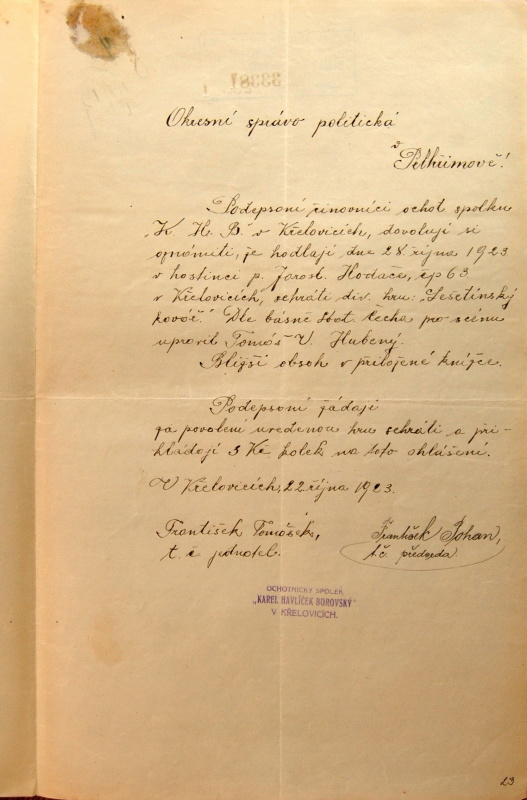 33387
Okresní správo politická
v
Pelhřimově!
Podepsaní činovníci ochot spolku
„K. H. B." v Křelovicích, dovolují si
oznámiti, že hodlají dne 28. října 1923
v hostinci p. Jarosl. Hodače, čp 63
v Křelovicích, sehráti div. hru: „Lešetínský
kovář." Dle básně Svat. Čecha pro scénu
upravil Tomáš V. Hubený.
Bližší obsah v přiložené knížce.
Podepsaní žádají
za povolení uvedenou hru sehráti a při-
kládají 3 Kč kolek na toto ohlášení.
V Křelovicích, 22 října 1923.
František Tomášek,
t. č jednatel.
František Johan,
t.č. předseda
OCHOTNICKÝ SPOLEK
„KAREL HAVLÍČEK BOROVSKÝ"
V KŘELOVICÍCH.
23